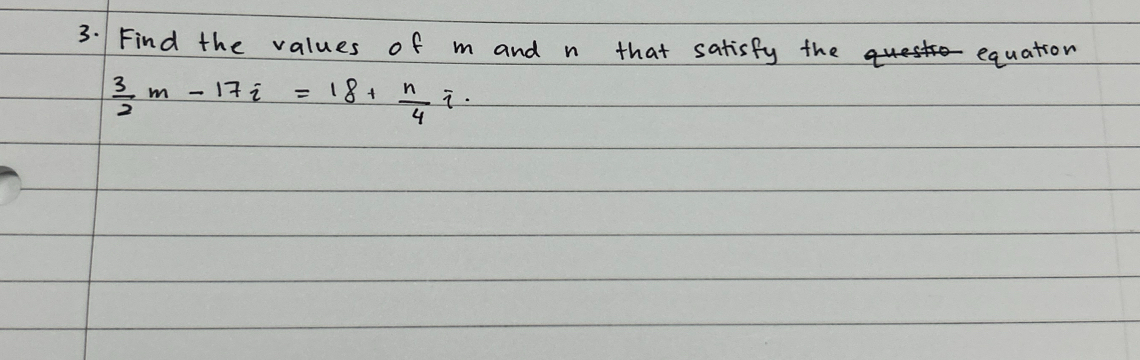 3. Find the values of m and n that satisfy the questio equation
3/2 m - 17i = 18 + n/4 i.